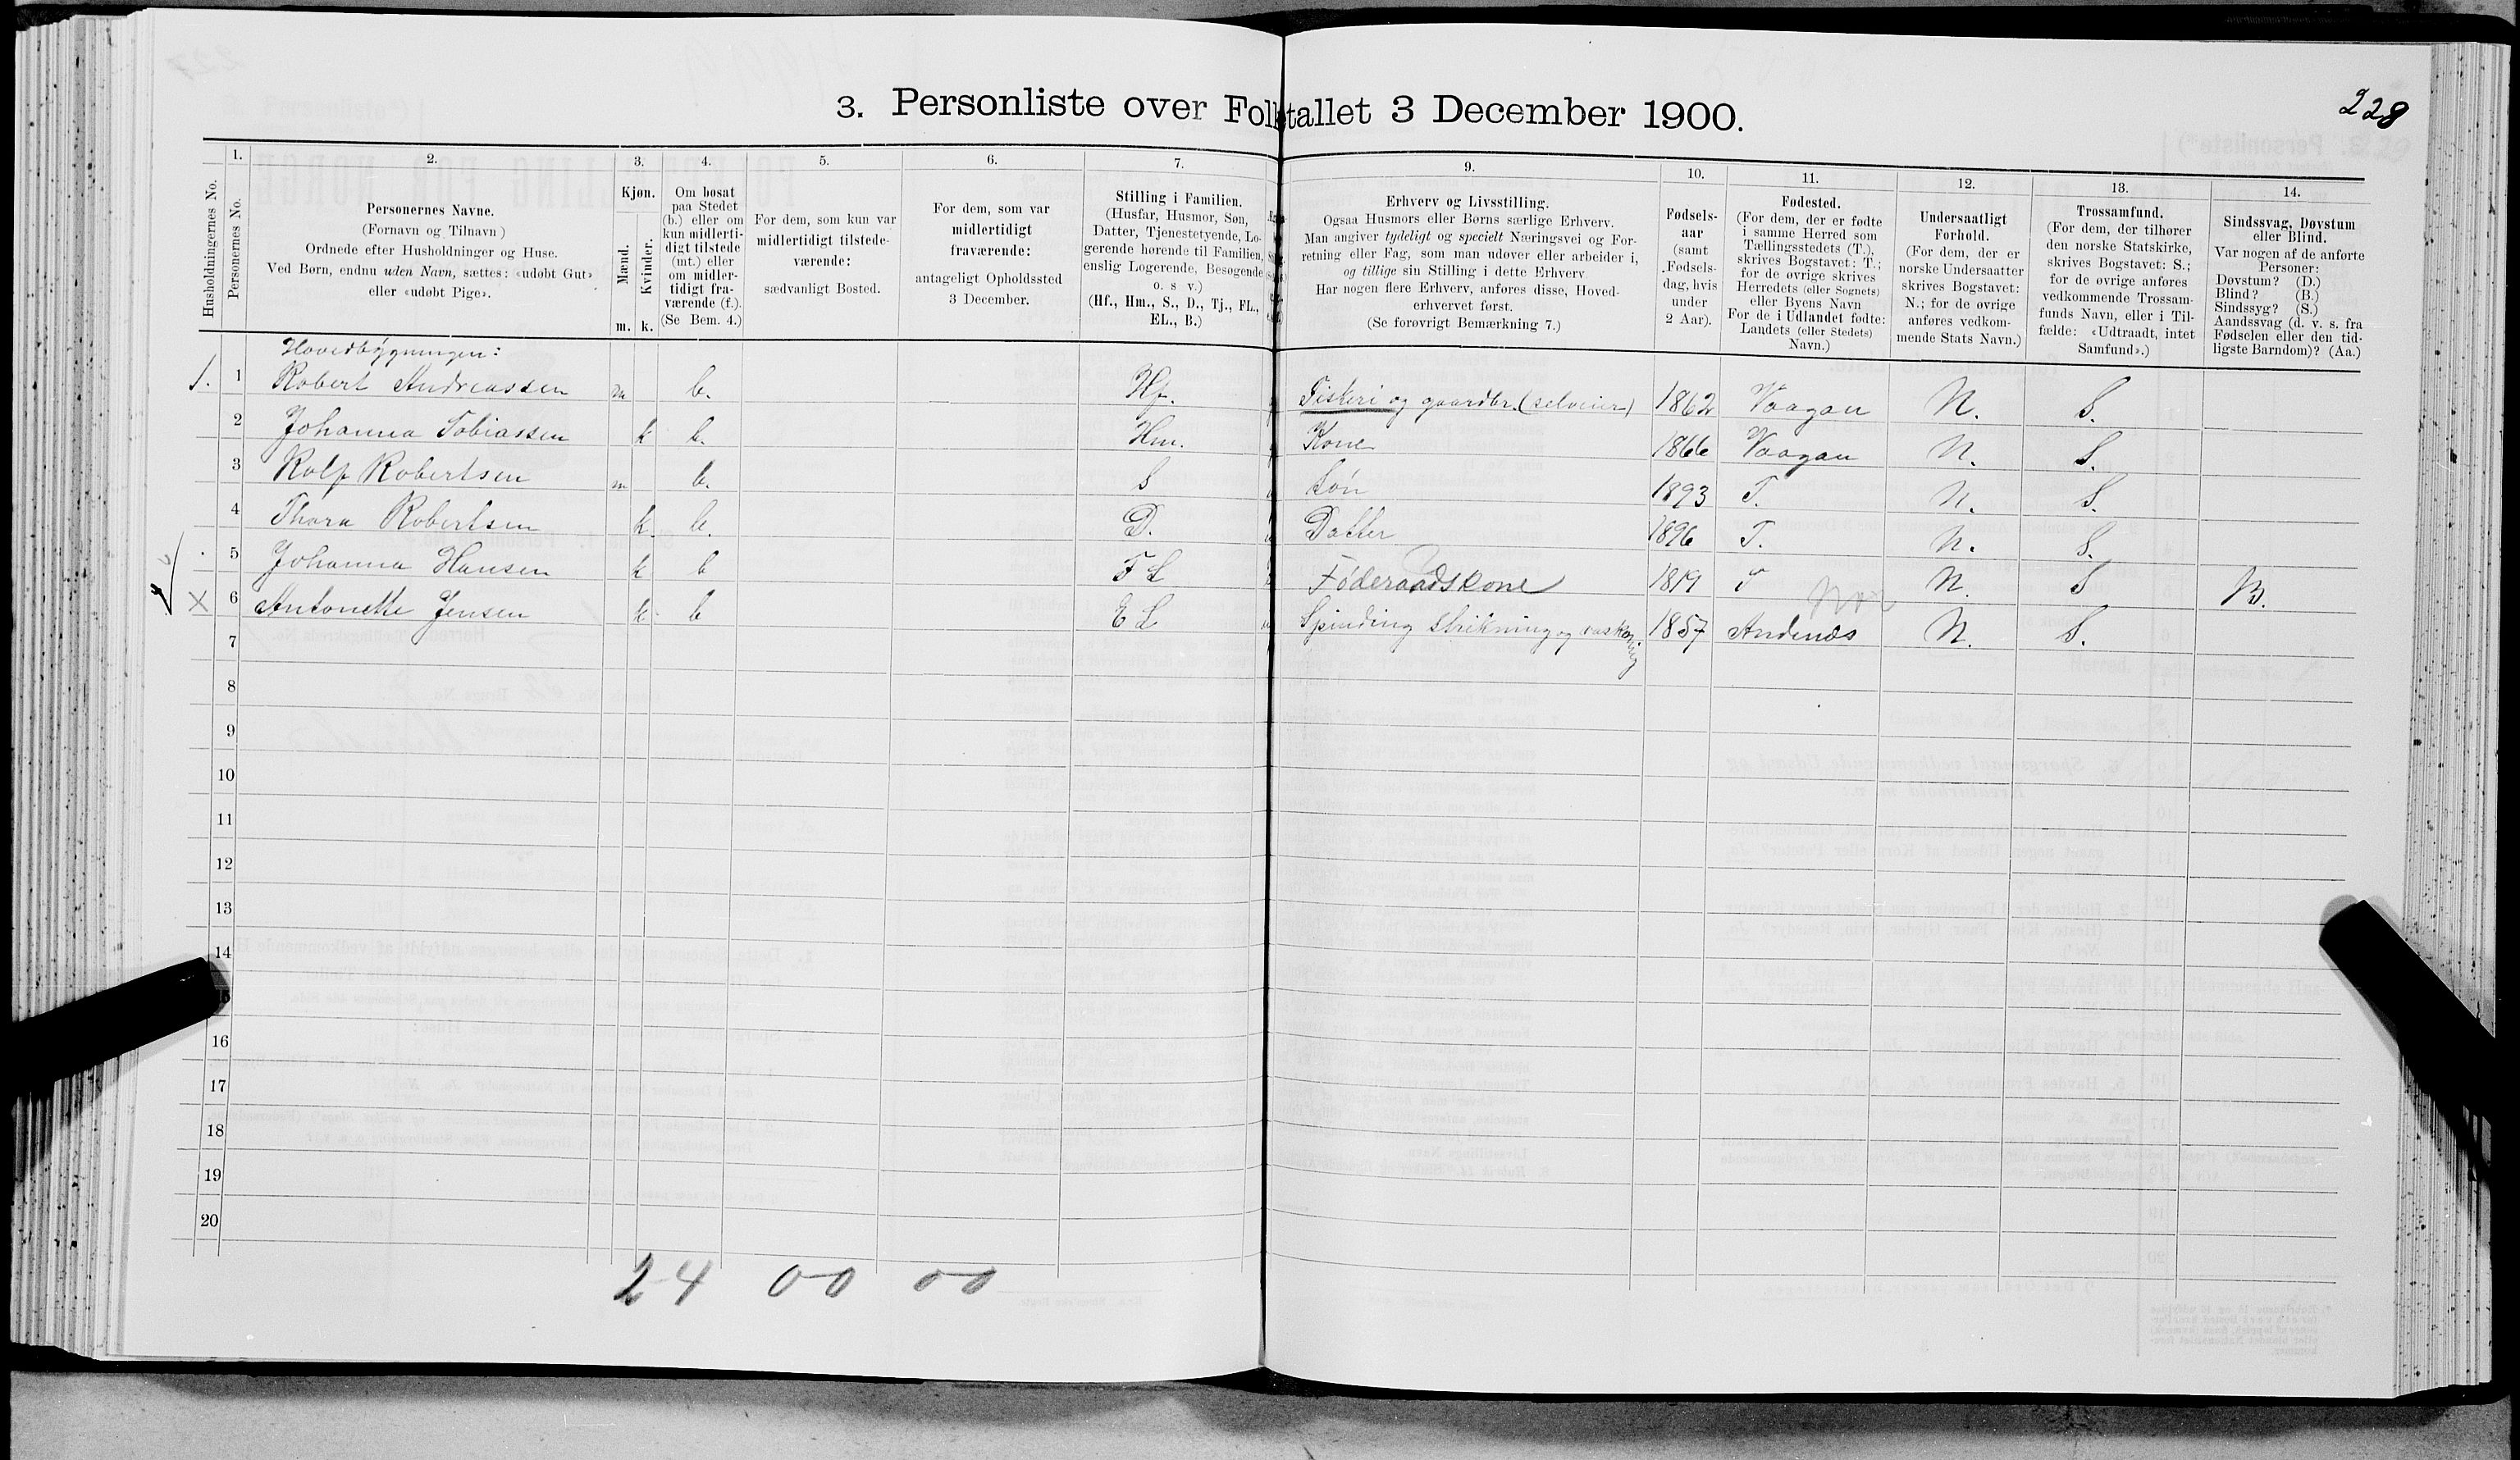 228
3. Personliste over Folketallet 3 December 1900.
Husholdningernes No.
1.
Personernes No.
2.
Personernes Navne.
(Fornavn og Tilnavn)
Ordnede efter Husholdninger og Huse.
Ved Børn, endnu uden Navn, sættes: «udøbt Gut»
eller «udøbt Pige».
3.
Kjøn.
Mænd.
Kvinder.
m. k.
4.
Om bosat
paa Stedet
(b.) eller om
kun midlerti-
digt tilstede
(mt.) eller
om midler-
tidigt fra-
værende (f.).
(Se Bem. 4.)
5.
For dem, som kun var
midlertidigt tilstede-
værende:
sædvanligt Bosted.
6.
For dem, som var
midlertidigt
fraværende:
antageligt Opholdssted
3 December.
7.
Stilling i Familien.
(Husfar, Husmor, Søn,
Datter, Tjenestetyende, Lo-
gerende hørende til Familien,
enslig Logerende, Besøgende
o. s v.)
(Hf., Hm., S., D., Tj., FL.,
EL., B.)
9.
Erhverv og Livsstilling.
Ogsaa Husmors eller Børns særlige Erhverv.
Man angiver tydeligt og specielt Næringsvei og For-
retning eller Fag, som man udøver eller arbeider i,
og tillige sin Stilling i dette Erhverv
Har nogen flere Erhverv, anføres disse, Hoved-
erhvervet først.
(Se forøvrigt Bemærkning 7.)
10.
Fødsels-
aar
(samt
Fødsels-
dag, hvis
under
2 Aar).
11.
Fødested.
(For dem, der er fødte
i samme Herred som
Tællingsstedets (T.),
skrives Bogstavet: T.;
for de øvrige skrives
Herredets (eller Sognets)
eller Byens Navn
For de i Udlandet fødte:
Landets (eller Stedets)
Navn.)
12.
Undersaatligt
Forhold.
(For dem, der er
norske Undersaatter
skrives Bogstavet:
N.; for de øvrige
anføres vedkom-
mende Stats Navn.)
13.
Trossamfund.
(For dem, der tilhører
den norske Statskirke,
skrives Bogstavet: S.;
for de øvrige anføres
vedkommende Trossam-
funds Navn, eller i Til-
fælde: «Udtraadt, intet
Samfund».)
14.
Sindssvag, Døvstum
eller Blind.
Var nogen af de anførte
Personer:
Døvstum? (D.)
Blind? (B.)
Sindssyg? (S.)
Aandssvag (d. v. s. fra
Fødselen eller den tid-
ligste Barndom)? (Aa.)
Hovedbygningen:
1. 1 Robert Andreassen m b. Hf. Fiskeri og gaardbr. (selveier) 1862 Vaagan N. S.
2 Johanna Tobiassen k b. Hm. Kone 1866 Vaagan N. S.
3 Rolf Robertsen m b. S Søn 1893 T. N. S.
4 Thora Robertsen k. b. D. Datter 1896 T. N. S.
5 Johanna Hansen k b F L Føderaadskone 1819 T N. S B.
X 6 Antonette Jensen k b E L Spinding strikning og vaskning 1857 Andenæs N. S.
7
8
9
10
11
12
13
14
16
17
18
19
20
24 00 00